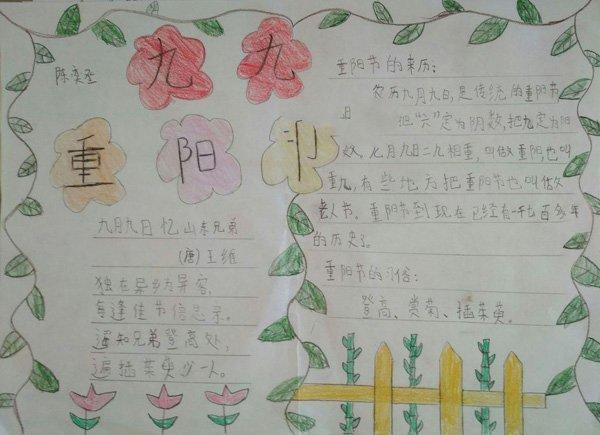 陈奕丞
九 九
重 阳 节
九月九日忆山东兄弟
(唐) 王维
独在异乡为异客,
每逢佳节倍思亲。
遥知兄弟登高处,
遍插茱萸少一人。
重阳节的来历:
农历九月九日,是传统的重阳节,
把“六”定为阴数,把九定为阳
数。九月九日二九相重,叫做重阳,也叫
重九,有些地方把重阳节也叫做
老人节。重阳节到现在已经有一千七百多年
的历史了。
重阳节的习俗:
登高、赏菊、插茱萸。